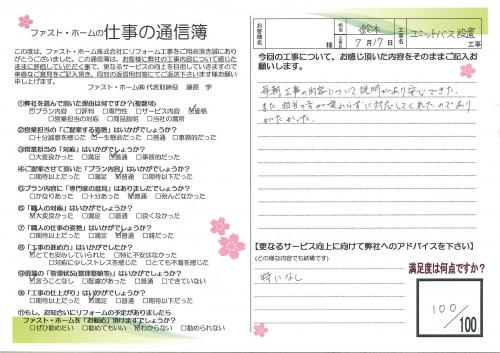 ファスト・ホームの仕事の通信簿
この度は、ファスト・ホーム株式会社にリフォーム工事をご用命頂き誠にあり
がとうございました。この通信簿は、お客様に弊社の工事内容について感じた
まま評価していただく事で、更なるサービスの向上を目指していきますので
率直なご意見をご記入頂き、同封の返信用封筒にてご返送下さいます様お願い
申し上げます。
ファスト・ホーム㈱ 代表取締役 藤原 学
①弊社を選んで頂いた理由は何ですか?(複数可)
□プラン内容 □評判 □専門性 □サービス内容 ☑価格
□営業担当の対応 □商品説明 □当社の雰囲
②営業担当の「ご提案する姿勢」はいかがでしょうか?
□十分誠意を感じた ☑一生懸命だった □普通 □事務的だった
③営業担当の「対応」はいかがでしょうか?
□大変良かった □満足 ☑普通 □事務的だった
④ご提案させて頂いた「プラン内容」はいかがでしょうか?
□期待以上だった □満足 ☑普通 □期待以下だった
⑤プラン内容に「専門家の意見」はありましたでしょうか?
□かなりあった □十分あった ☑普通 □殆んどなかった
⑥「職人の対応」はいかがでしょうか?
☑大変良かった □満足 □普通 □良くなかった
⑦「職人の仕事の姿勢」はいかがでしょうか?
□期待以上だった ☑満足 □普通 □雑だった
⑧「工事の進め方」はいかがでしたか?
☑とても安心していられた □特に不安はなかった
□対応に少しストレスを感じた □とても不満を感じた
⑨現場の「管理状況(整理整頓等)」はいかがでしょうか?
☑言うことなし □配慮があった □普通 □できていない
⑩「工事の仕上がり」はいかがでしょうか?
□期待以上だった ☑満足 □普通 □期待以下だった
⑪もし、お知合いにリフォームの予定がありましたら
ファスト・ホームを「お勧め」頂けますでしょうか?
□ぜひ勧めたい □勧めてもいい ☑わからない □勧められない
お客様名 様 担当 鈴木 7月17日 工事名 ユニットバス設置 工事
今回の工事について、お感じ頂いた内容をそのままご記入お
願いします。
毎朝工事の内容について説明があり安心できた。
また担当の方が変わらずに対応してくれたのであり
がたかった。
【更なるサービス向上に向けて弊社へのアドバイスを下さい】
(どの様な内容でも結構です)
特になし
満足度は何点ですか?
100/100